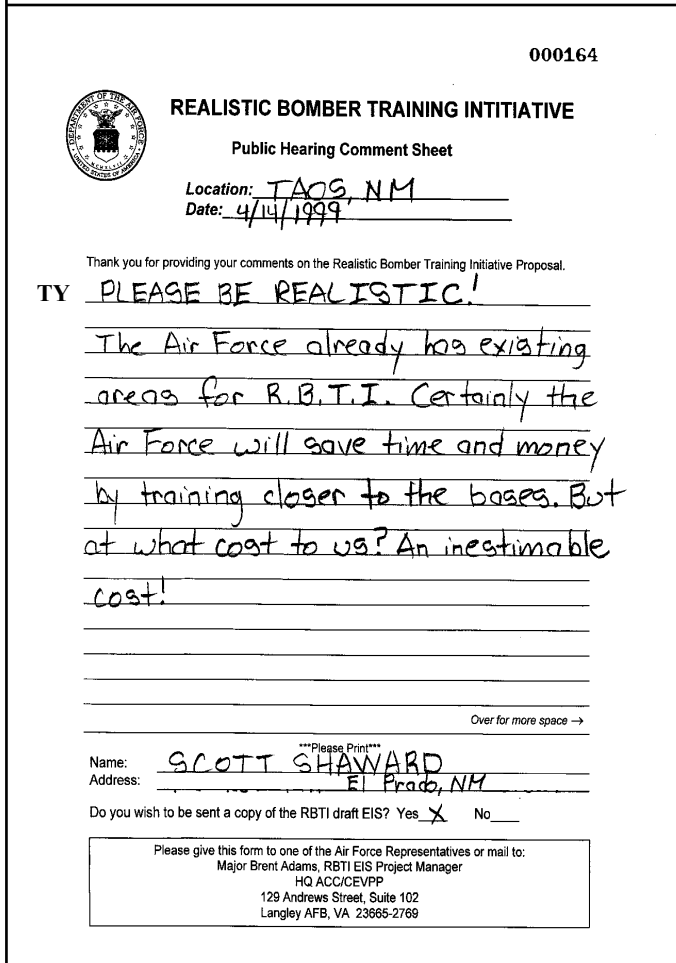 000164
DEPARTMENT OF THE AIR FORCE
MCMXLVII
UNITED STATES OF AMERICA
REALISTIC BOMBER TRAINING INTITIATIVE
Public Hearing Comment Sheet
Location: TAOS, NM
Date: 4/14/1999
Thank you for providing your comments on the Realistic Bomber Training Initiative Proposal.
TY PLEASE BE REALISTIC!
The Air Force already has existing
areas for R.B.T.I. Certainly the
Air Force will save time and money
by training closer to the bases. But
at what cost to us? An inestimable
cost!
Over for more space →
***Please Print***
Name: SCOTT SHAWARD
Address: El Prado, NM
Do you wish to be sent a copy of the RBTI draft EIS? Yes X No
Please give this form to one of the Air Force Representatives or mail to:
Major Brent Adams, RBTI EIS Project Manager
HQ ACC/CEVPP
129 Andrews Street, Suite 102
Langley AFB, VA 23665-2769